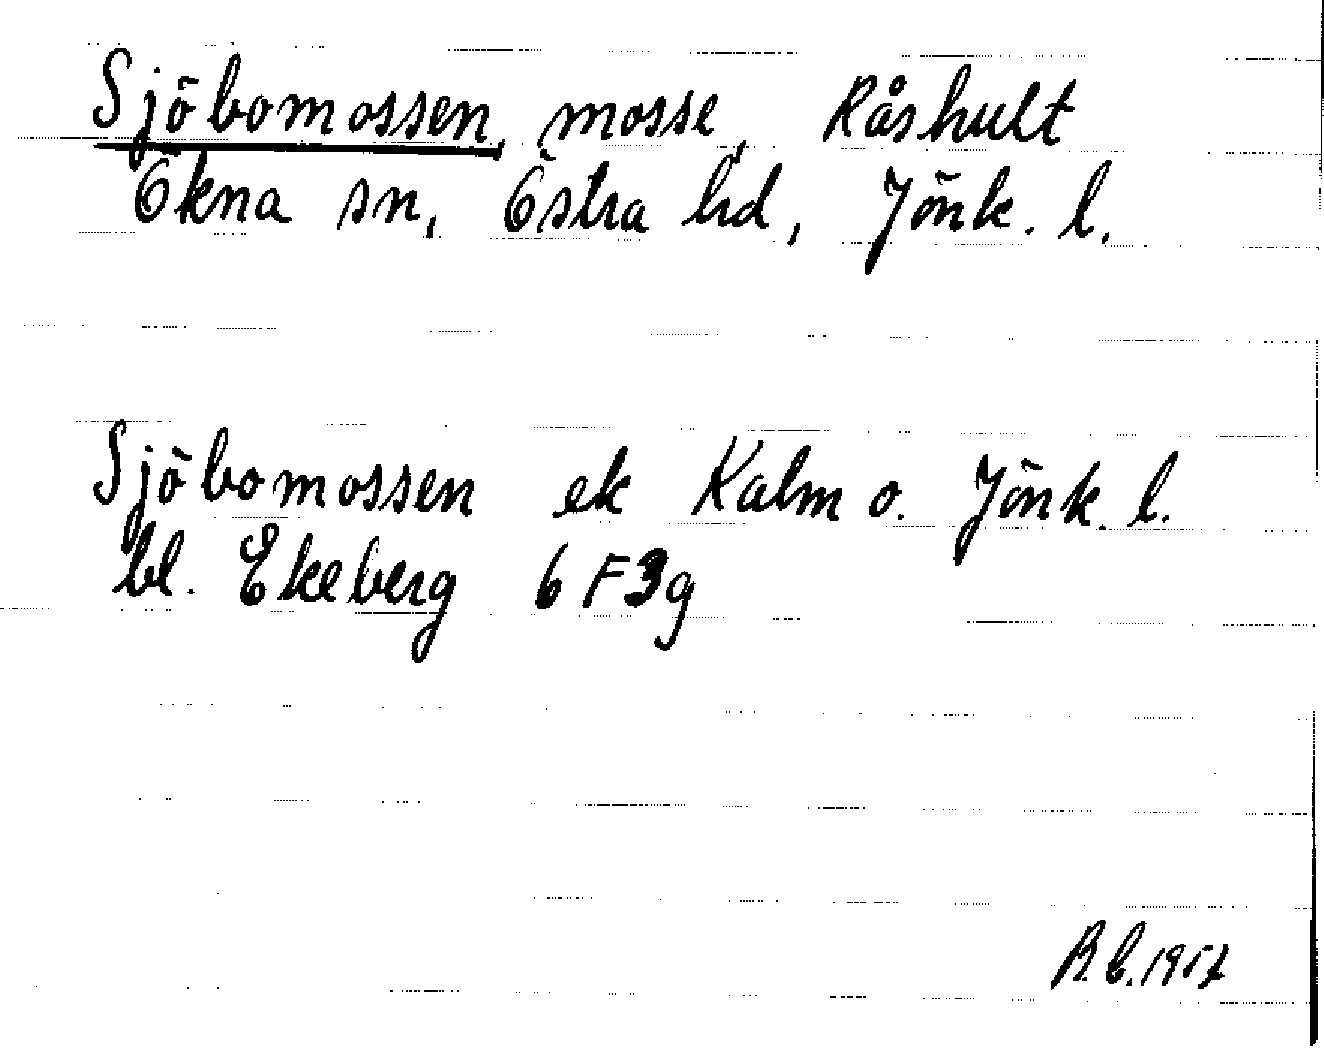 Sjöbomossen, mosse, Råshult
Ökna sn, Östra hd, Jönk. l.
Sjöbomossen ek Kalm o. Jönk. l.
bl. Ekeberg 6 F 3g
R.b. 1957